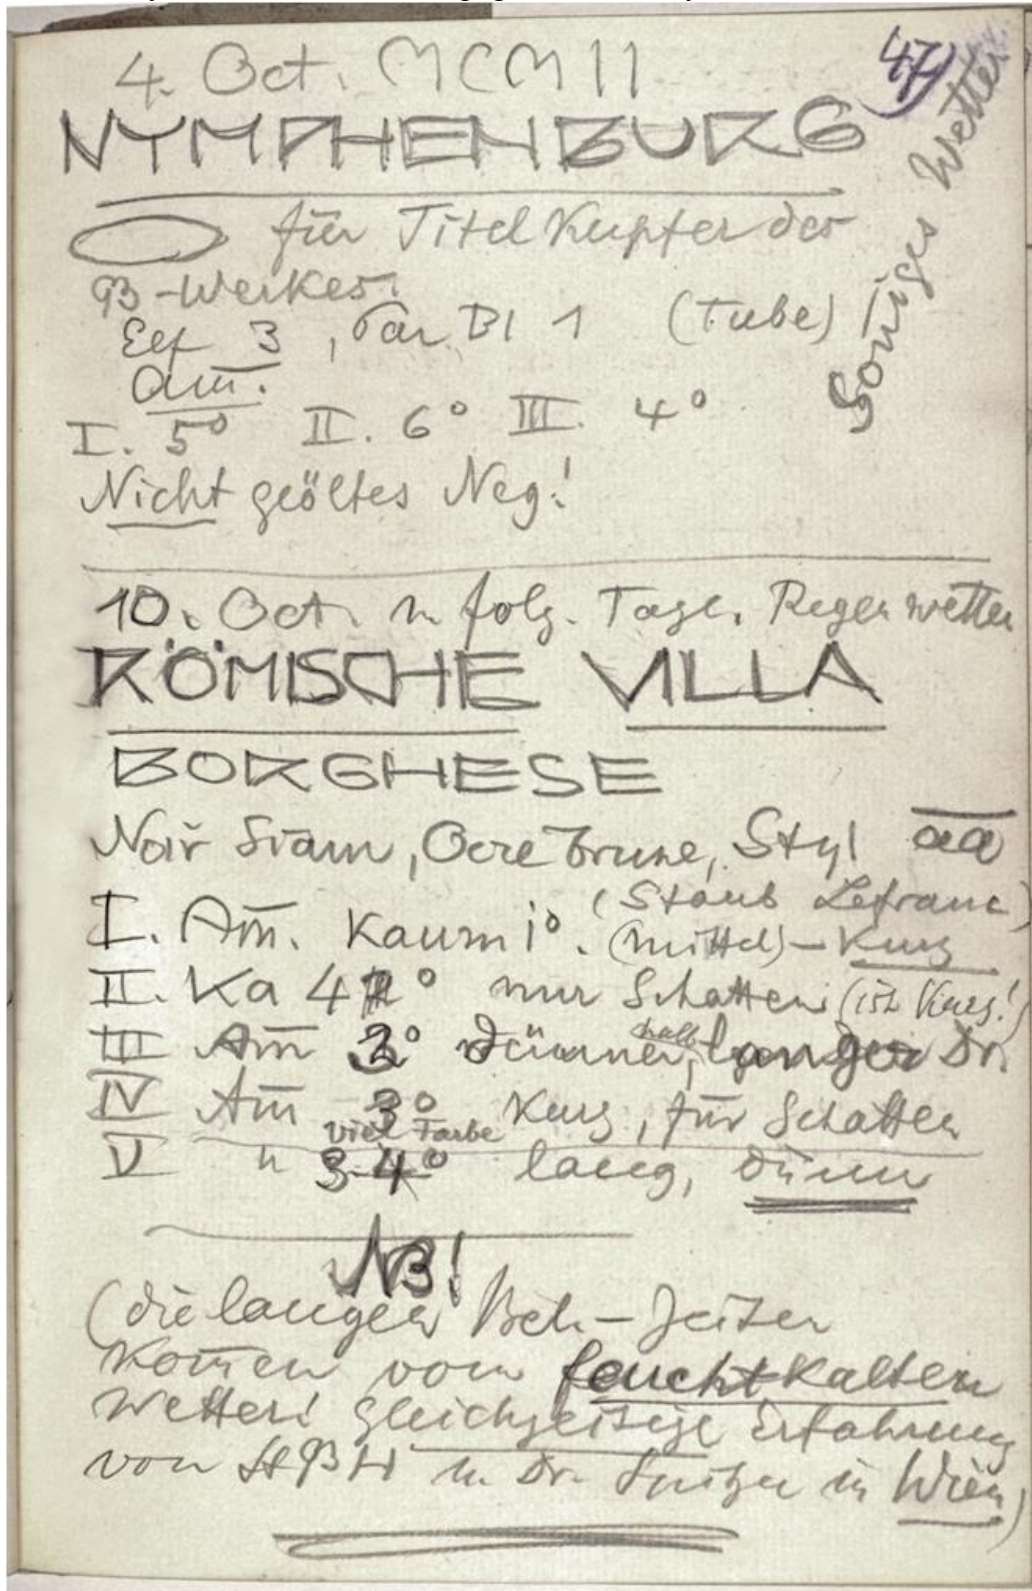 47
4. Oct. MCMII
NYMPHENBURG
Soniges Wetter
für Titel Kupfer des
B-Werkes.
3, Bl 1 (Tube)
Am̄.
I. 5° II. 6° III. 4°
Nicht geöltes Neg.!
10. Oct. u folg. Tage. Regenwetter
RÖMISCHE VILLA
BORGHESE
Noir Siam, Ocre Brune, Styl a͞a
(Staub Lefranc)
I. Am̄. Kaum 1°. (mittel) - Kurz
II. Ka 4° nur Schatten (ist Kurz!)
III Am̄ 2° dünner, halb langer Dr.
IV Am̄ 3° Kurz, für Schatten
viel Farbe
V " 3-4° lang, dünn
NB!
(die langen Bel.-Zeiten
kom̄en vom feuchtkalten
Wetter! gleichzeitige Erfahrung
von u. Dr. Spitzer in Wien)